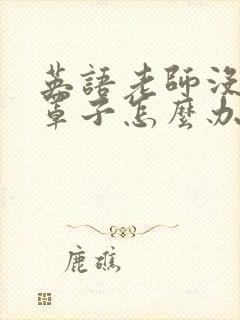 英語老師沒
罩子怎麼办
鹿礁